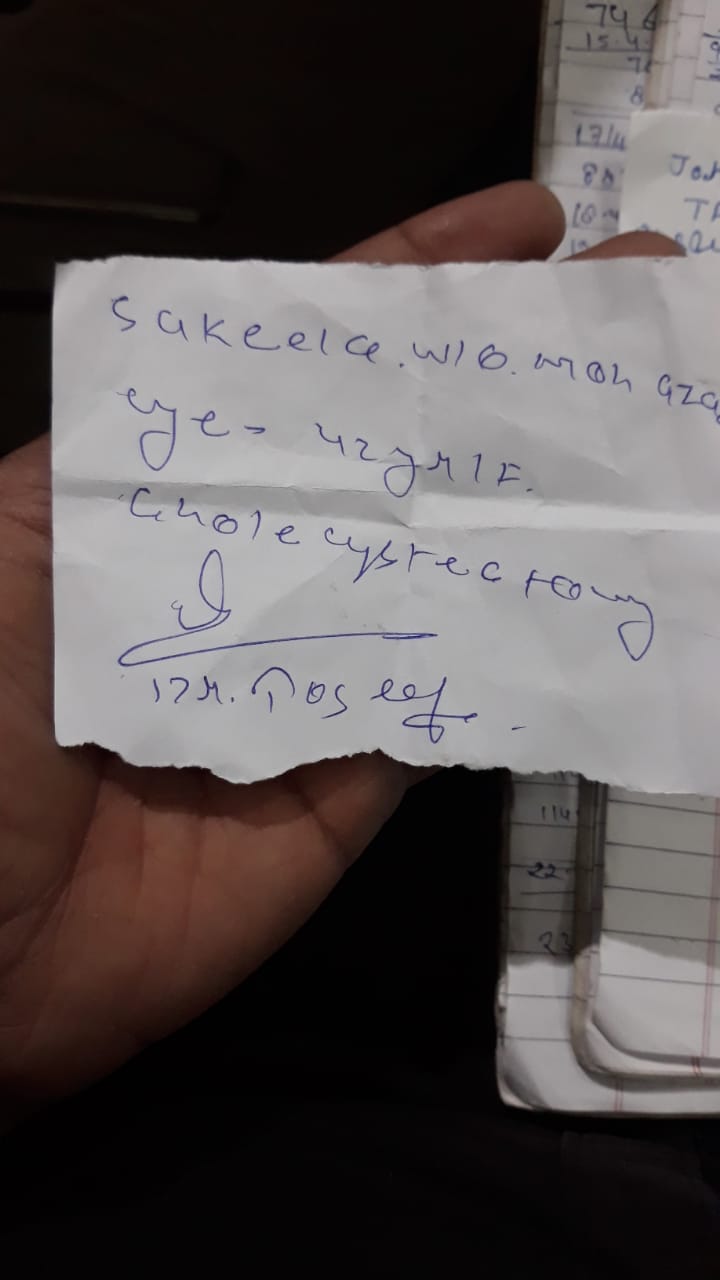 746
15.4
17/4
Sakeela. W/O. Moh aza
eye- 42yr/F.
Cholecystectomy
Dr. Tos eef.
114
22
23